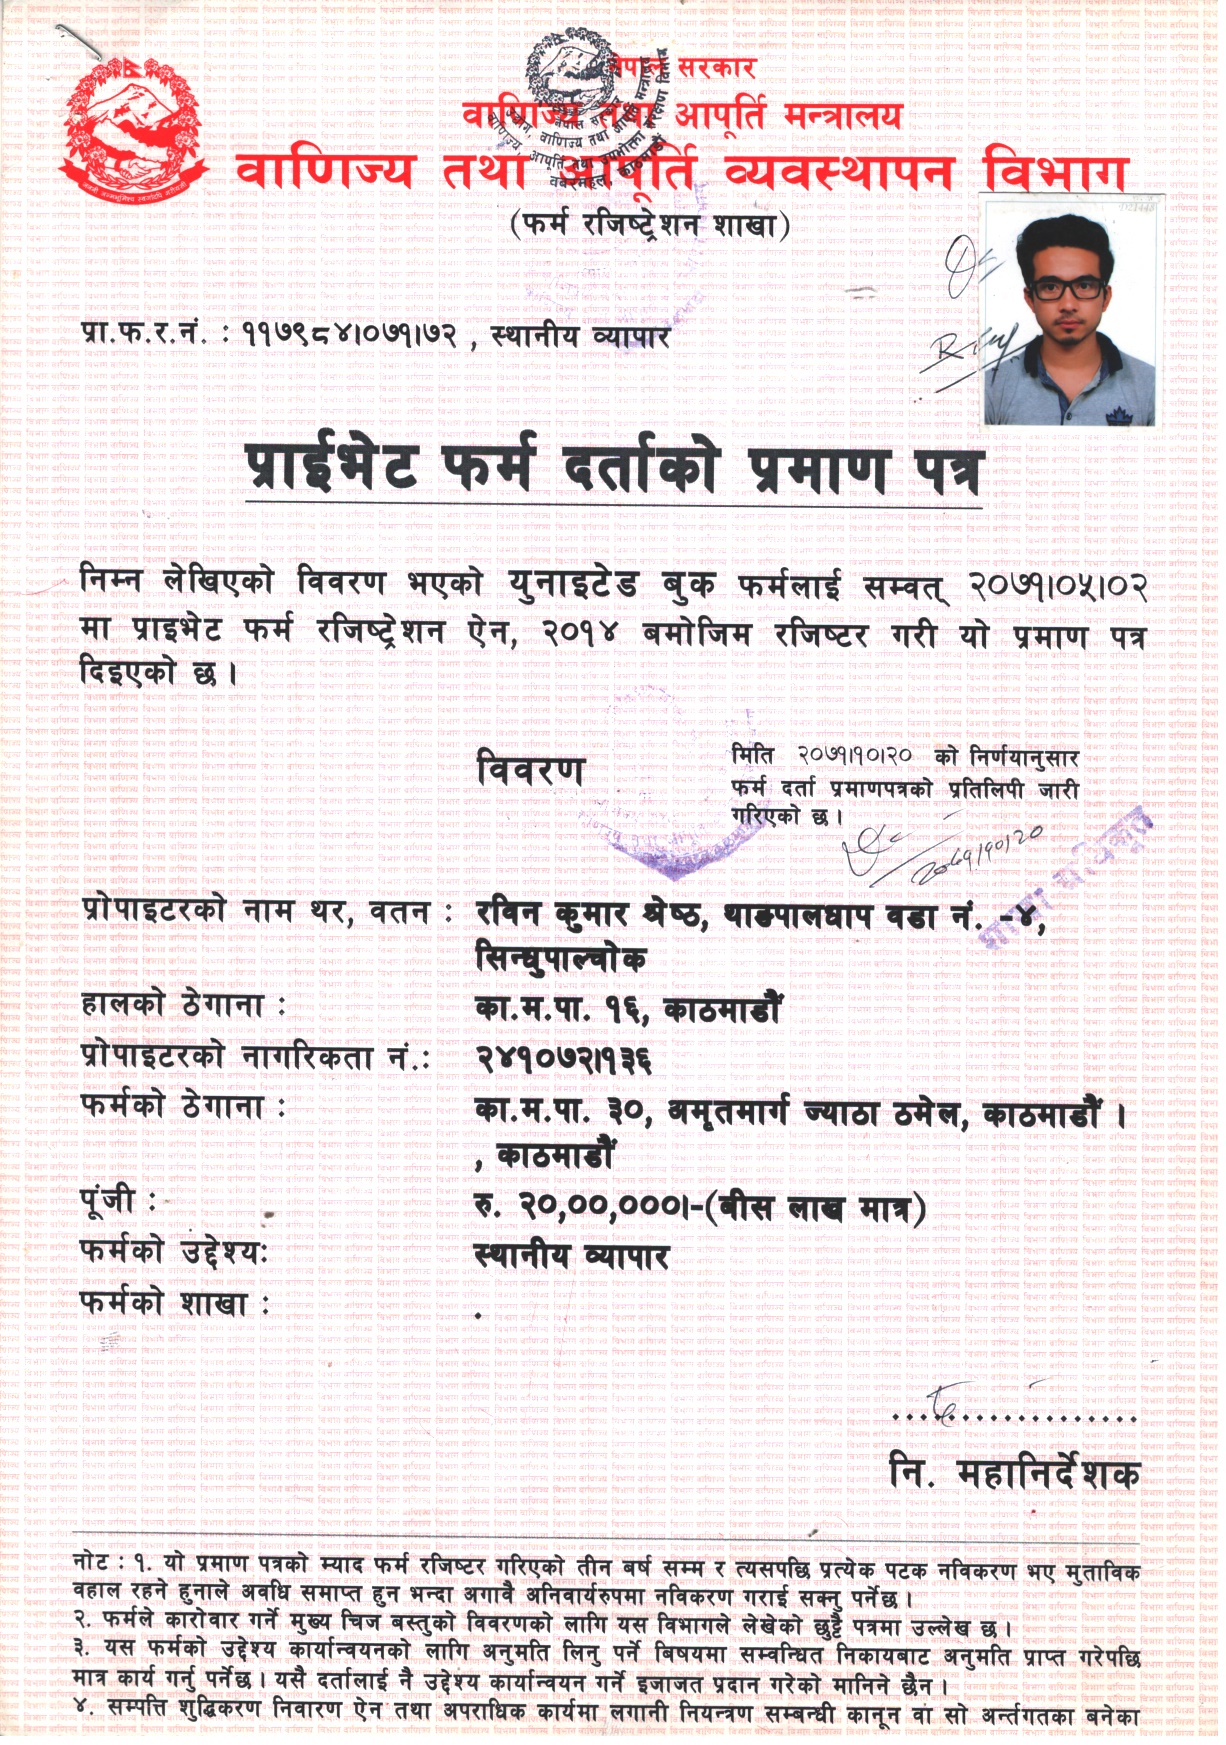 नेपाल सरकार
वाणिज्य तथा आपूर्ति मन्त्रालय
वाणिज्य तथा आपूर्ति व्यवस्थापन विभाग
(फर्म रजिष्ट्रेशन शाखा)
प्रा.फ.र.नं. : ११७९८४।०७१।७२ , स्थानीय व्यापार
प्राईभेट फर्म दर्ताको प्रमाण पत्र
निम्न लेखिएको विवरण भएको युनाइटेड बुक फर्मलाई सम्वत् २०७१।०५।०२
मा प्राइभेट फर्म रजिष्ट्रेशन ऐन, २०१४ बमोजिम रजिष्टर गरी यो प्रमाण पत्र
दिइएको छ ।
विवरण
मिति २०७१।१०।२० को निर्णयानुसार
फर्म दर्ता प्रमाणपत्रको प्रतिलिपी जारी
गरिएको छ ।
२०७१।१०।२०
शाखा अधिकृत
प्रोपाइटरको नाम थर, वतन : रविन कुमार श्रेष्ठ, थाङपालधाप वडा नं. -४,
सिन्धुपाल्चोक
हालको ठेगाना : का.म.पा. १६, काठमाडौं
प्रोपाइटरको नागरिकता नं.: २४१०७२।१३६
फर्मको ठेगाना : का.म.पा. ३०, अमृतमार्ग ज्याठा ठमेल, काठमाडौं ।
, काठमाडौं
पूंजी : रु. २०,००,०००।-(बीस लाख मात्र)
फर्मको उद्देश्यः स्थानीय व्यापार
फर्मको शाखा : .
नि. महानिर्देशक
नोट : १. यो प्रमाण पत्रको म्याद फर्म रजिष्टर गरिएको तीन बर्ष सम्म र त्यसपछि प्रत्येक पटक नविकरण भए मुताविक
वहाल रहने हुनाले अवधि समाप्त हुन भन्दा अगावै अनिवार्यरुपमा नविकरण गराई सक्नु पर्नेछ ।
२. फर्मले कारोवार गर्ने मुख्य चिज बस्तुको विवरणको लागि यस विभागले लेखेको छुट्टै पत्रमा उल्लेख छ ।
३. यस फर्मको उद्देश्य कार्यान्वयनको लागि अनुमति लिनु पर्ने बिषयमा सम्वन्धित निकायबाट अनुमति प्राप्त गरेपछि
मात्र कार्य गर्नु पर्नेछ । यसै दर्तालाई नै उद्देश्य कार्यान्वयन गर्ने इजाजत प्रदान गरेको मानिने छैन ।
४. सम्पत्ति शुद्धिकरण निवारण ऐन तथा अपराधिक कार्यमा लगानी नियन्त्रण सम्बन्धी कानून वा सो अर्न्तगतका बनेका